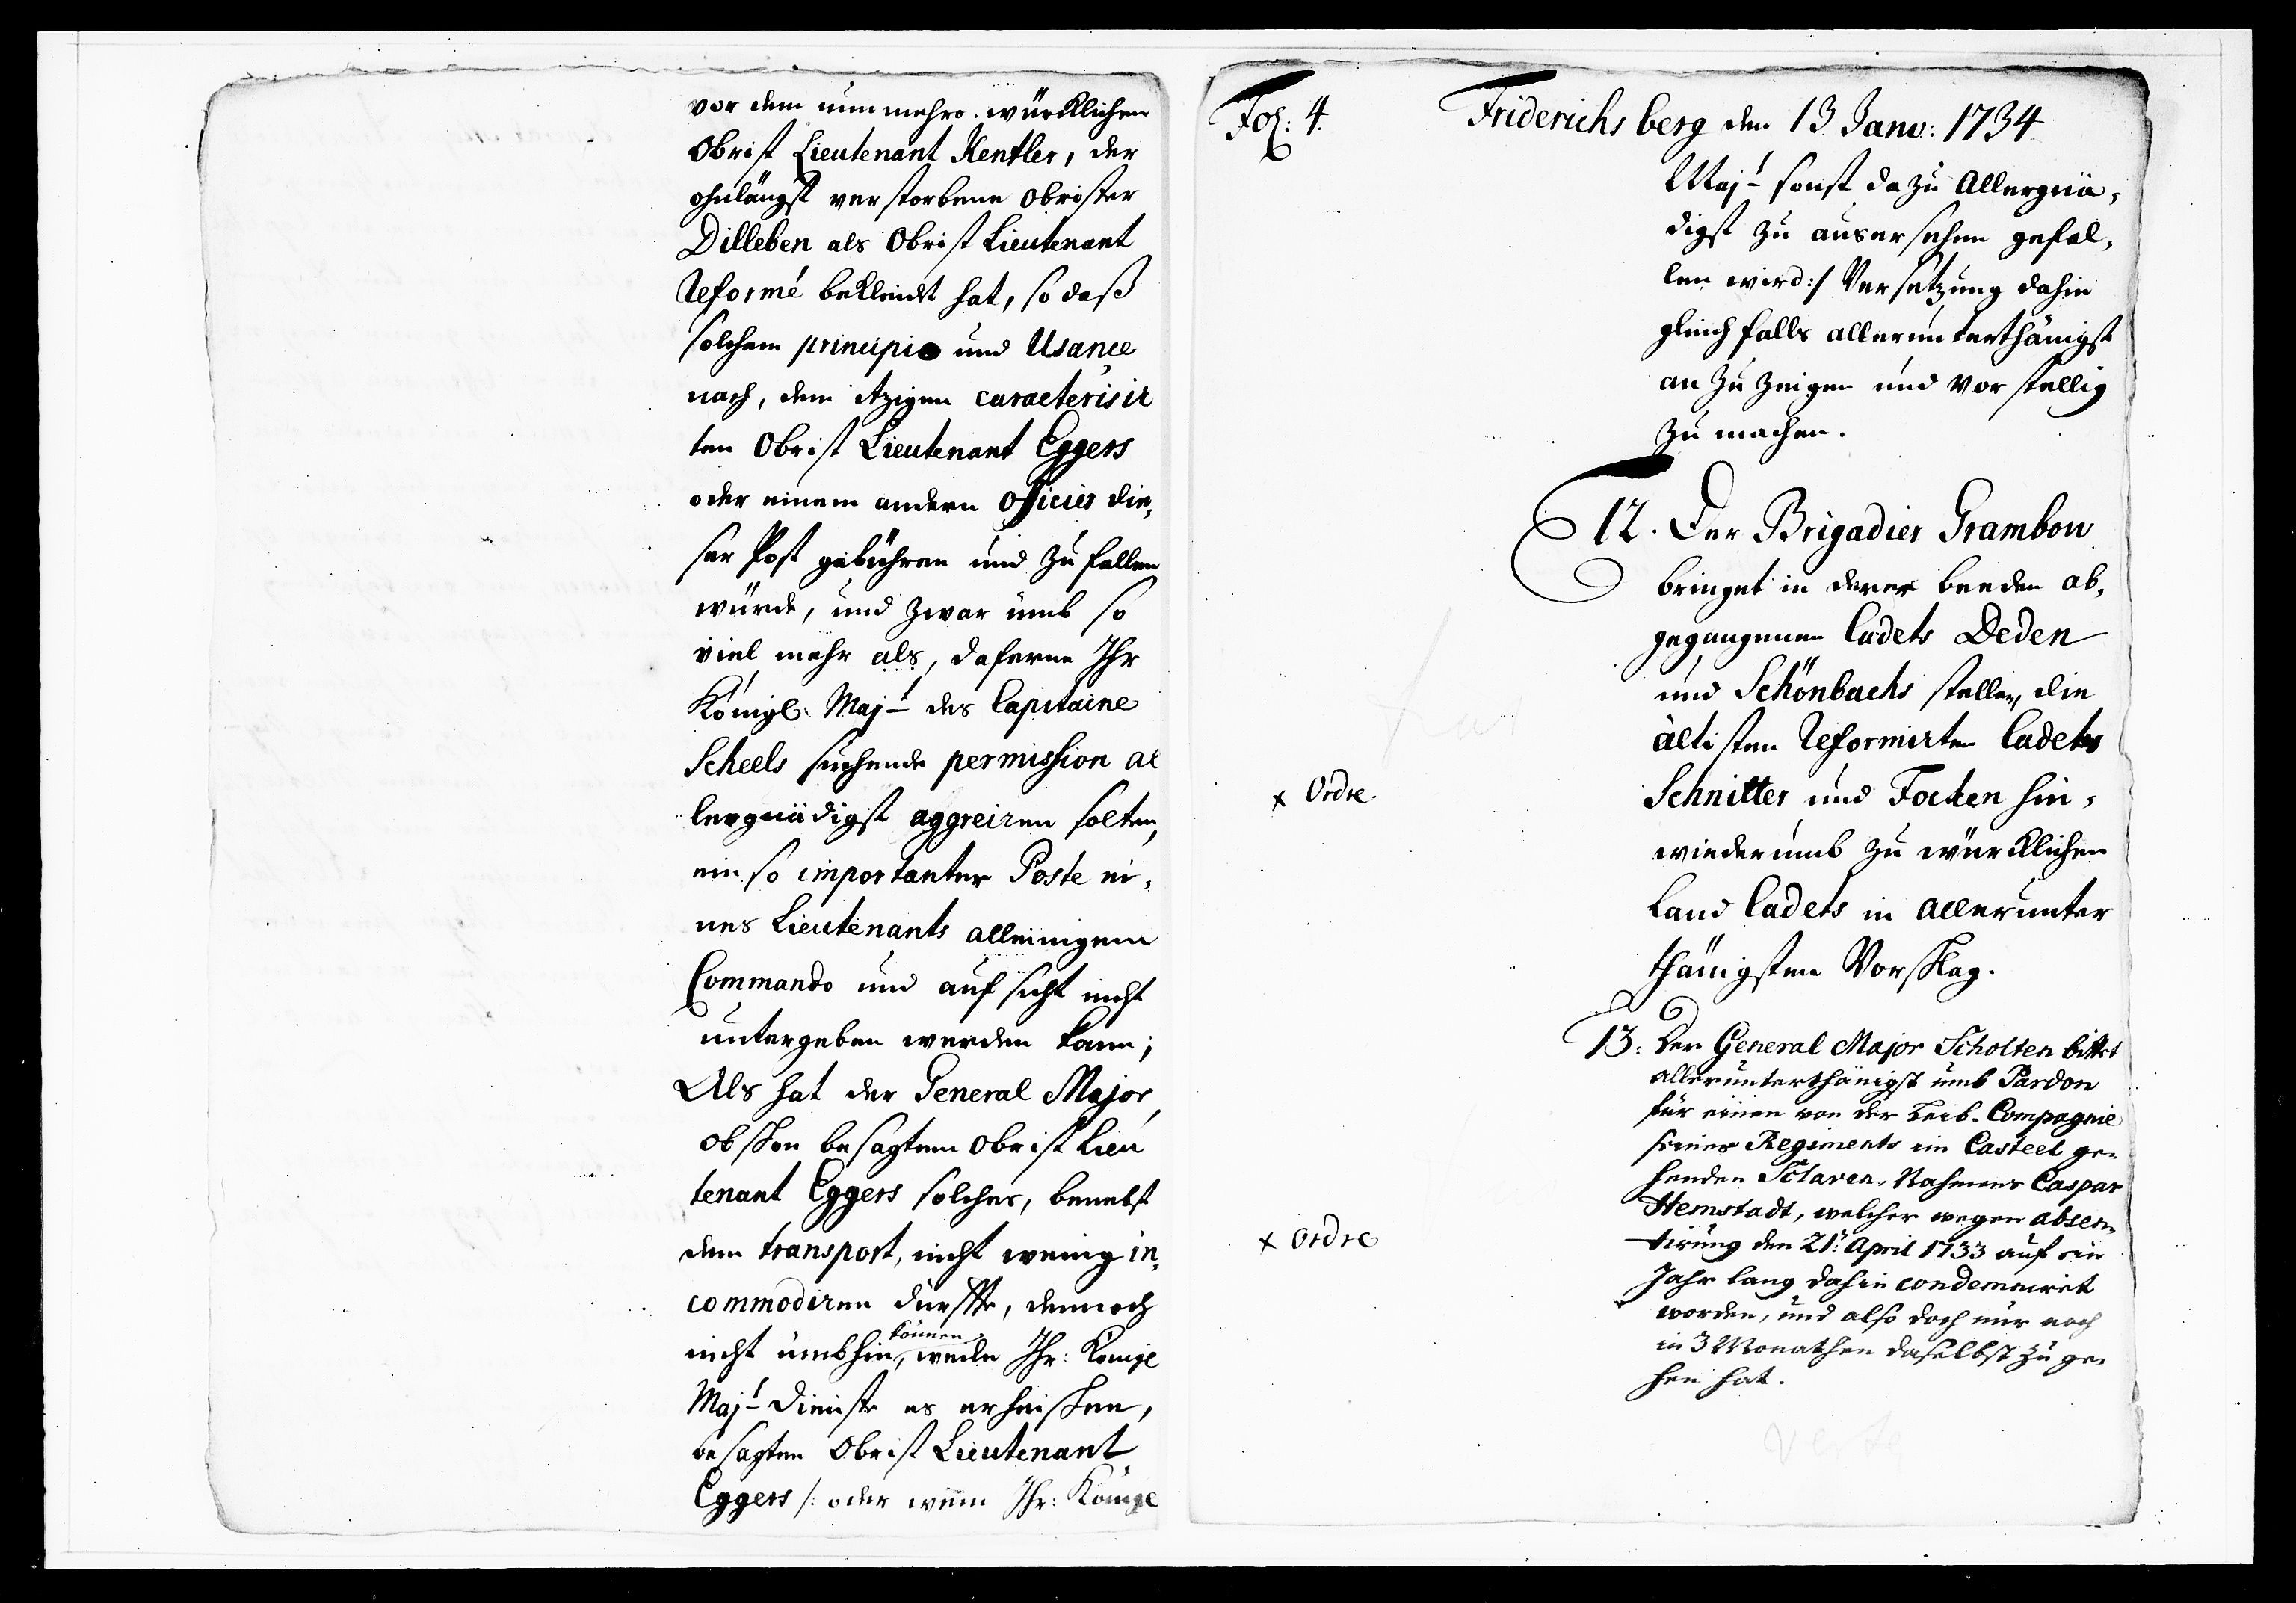 vor dem nunmehro würcklichen
Obrist Lieutenant Kentler, der
ohnlängst verstorbene Obrister
Dilleben als Obrist Lieutenant
Reformé bekleidet hat, so daß
solchem principio und Usance
nach, dem itzigen caracterisir
ten Obrist Lieutenant Eggers
oder einem andern Officier die,
ser Post gebühren und zu fallen
würde, und zwar umb so
viel mehr als, daferne Ihr
Königl: Maj:t des Capitaine
Scheels suchende permission al
lergnädigst aggreiren solten,
ein so importanter Poste ei,
nes Lieutenants alleinigem
Commando und aufsicht nicht
untergeben werden kann;
Als hat der General Major,
obschon besagtem Obrist Lieu
tenant Eggers solches, benebst
dem transport, nicht wenig in,
commodiren dürffte, dennoch
nicht umbhin können, weiln Ihr: Königl
Maj:t Dienste es erheischen,
besagten Obrist Lieutenant
Eggers /: oder wem Ihr: Königl
Fol: 4.
Friderichsberg den 13 Janu: 1734
Maj:t sonst dazu Allergnä,
digst zu ausersehen gefal,
len wird :/ Versetzung dahin
gleichfalls allerunterthänigst
an zu zeigen und vorstellig
zu machen.
12. Der Brigadier Grambow
bringet in derer beeden ab,
gegangenen Cadets Deden
und Schönbachs stellen, die
ältisten Reformirten Cadets
Schnitter und Focken hin,
x Ordre.
wiederumb zu würcklichen
Land Cadets in allerunter
thänigsten Vorschlag.
13. Der General Major Scholten bittet
allerunterthänigst umb Pardon
für einen von der Leib-Compagnie
seines Regiments im Casteel ge,
henden Sclaven, Nahmens Caspar
Hemstadt, welcher wegen absen,
x Ordre
tirung den 21: April 1733 auf ein
Jahr lang dahin condemniret
worden, und also doch nur noch
in 3 Monathen daselbst zu ge,
hen hat.